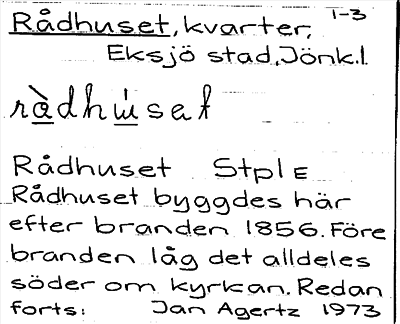 1-3
Rådhuset, kvarter,
Eksjö stad, Jönk.l.
rådhúset
Rådhuset Stpl E
Rådhuset byggdes här
efter branden 1856. Före
branden låg det alldeles
söder om kyrkan. Redan
forts: Jan Agertz 1973